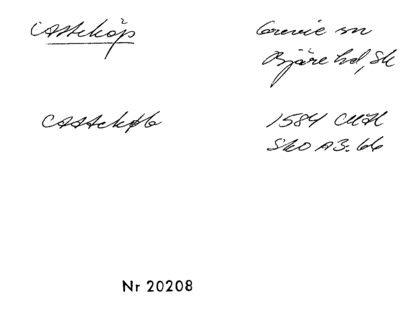 Atteköp Grevie sn
Bjäre hd, Sk
Attekøb 1584 CMH
SRO A3.66
Nr 20208